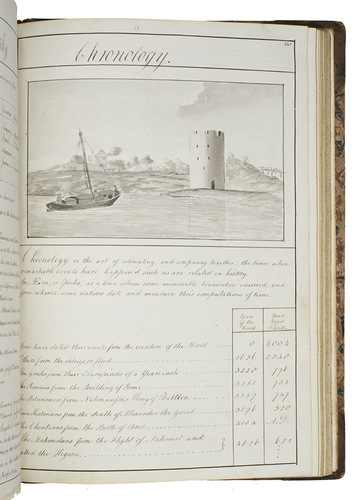 Chronology.
Chronology is the art of estimating, and comparing together, the times when
remarkable events have happen'd such as are related in history.
An Æra, or Epocha, is a time when some memorable transaction occurred, and
from whence some nations date and measure their computations of time.
Years of the World
Years before Christ
have dated their events from the creation of the World 0 4004
from the deluge or flood 1656 2348
The Greeks from their Olympiads of 4 years each 3228 776
The Romans from the building of Rome 3251 753
The Astronomers from Nabonassar King of Babilon 3257 747
from the death of Alexander the Great
The Christians from the Birth of Christ 4004 A.D.
The Mahomedans from the Flight of Mahomet and
called the Hegira 4626 622